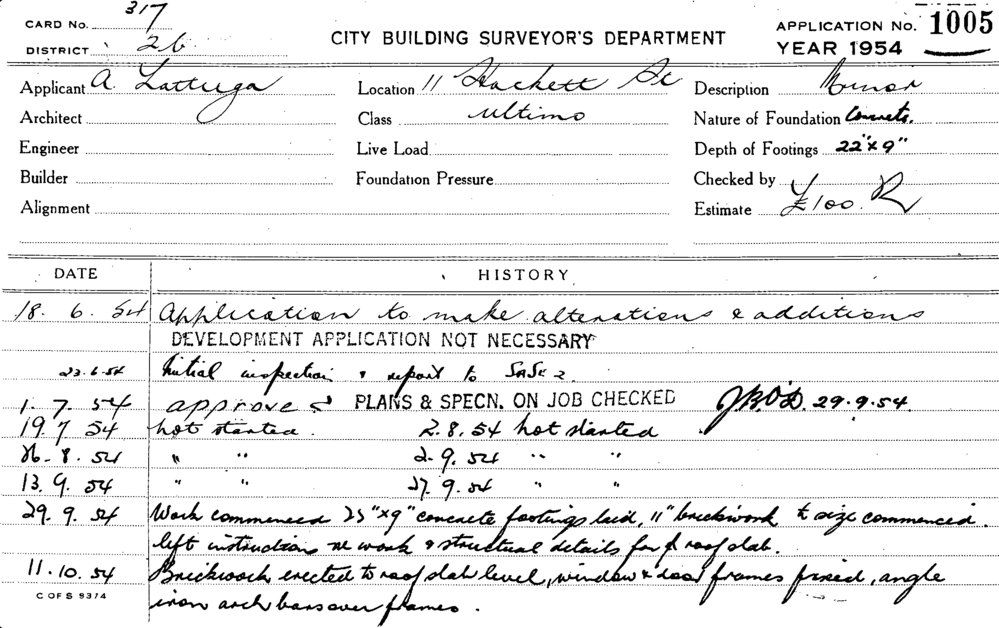 CARD No. 317
DISTRICT 26
CITY BUILDING SURVEYOR'S DEPARTMENT
APPLICATION No. 1005
YEAR 1954
Applicant A. Lattuga
Location 11 Hackett St
Description Minor
Architect
Class Ultimo
Nature of Foundation Concrete.
Engineer
Live Load
Depth of Footings 22" x 9"
Builder
Foundation Pressure
Checked by
Alignment
Estimate £100.
DATE HISTORY
18. 6. 54 Application to make alterations & additions
DEVELOPMENT APPLICATION NOT NECESSARY
23.6.54 Initial inspection & report to
1. 7. 54 approved PLANS & SPECN. ON JOB CHECKED 29.9.54.
19.7 54 not started. 2. 8. 54 not started
16. 8. 54 " " 2. 9. 54 " "
13. 9. 54 " " 27. 9. 54 " "
29. 9. 54 Work commenced 22"x9" concrete footings laid, 11" brickwork to size commenced.
left instructions re work & structural details for roof slab.
11. 10. 54 Brickwork erected to roof slab level, window & door frames fixed, angle
C OF S 9374
iron arch bars over frames.